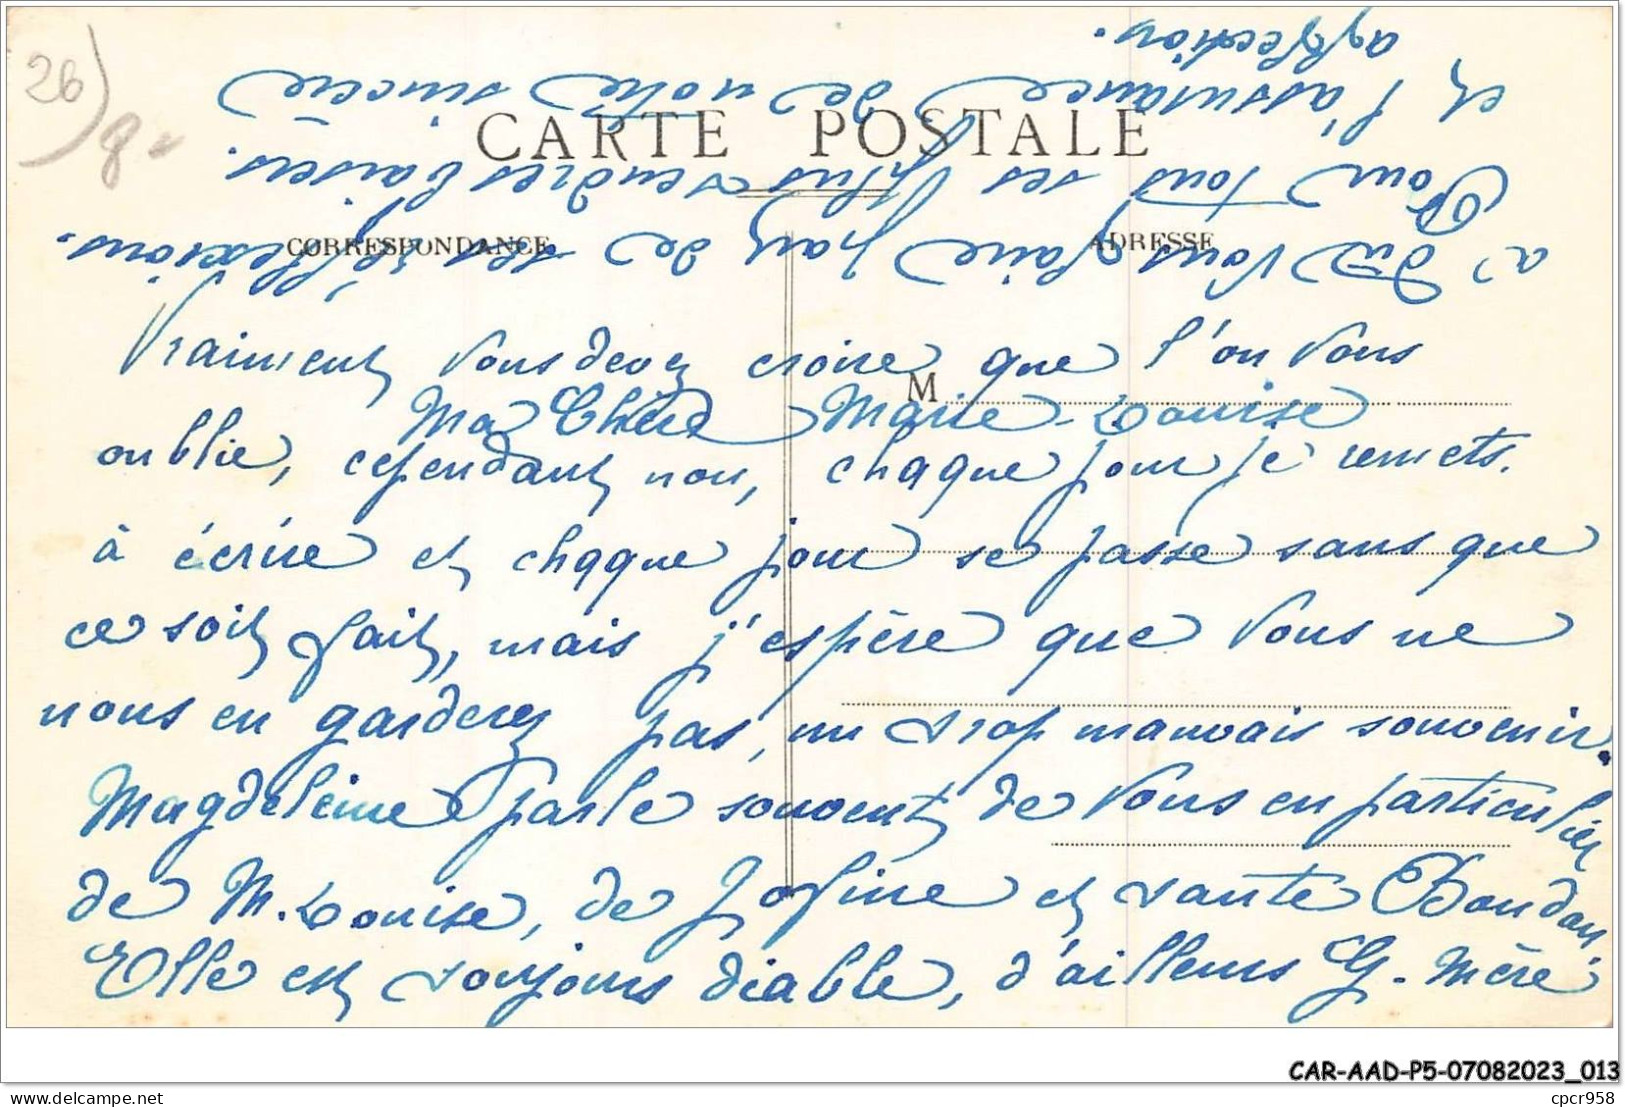 26
8-
CARTE POSTALE
CORRESPONDANCE
ADRESSE
M
Ma Chère Marie-Louise
Vraiment vous devez croire que l'on vous
oublie, cependant non, chaque jour je remets
à écrire et chaque jour se passe sans que
ce soit fait, mais j'espère que vous ne
nous en garderez pas, un trop mauvais souvenir.
Magdeleine parle souvent de vous en particulier
de M. Louise, de Josine et tante
Elle est toujours diable, d'ailleurs G. Mère
a dû vous faire part de ses réflexions.
Pour tous ses plus tendres baisers.
et l'assurance de notre sincère
affection.
CAR-AAD-P5-07082023_013
delcampe.net
cpcr958